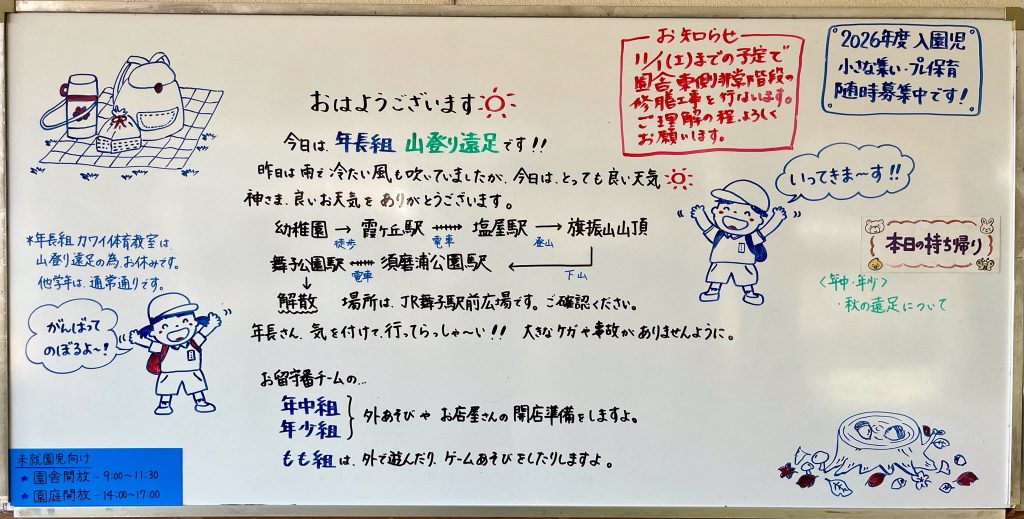 おはようございます
今日は 年長組 山登り遠足です!!
昨日は雨で冷たい風も吹いていましたが、今日は、とっても良い天気
神さま、良いお天気を ありがとうございます。
幼稚園 → 霞ヶ丘駅 ↔ 塩屋駅 → 旗振山山頂
徒歩 電車 登山
舞子公園駅 ↔ 須磨浦公園駅 ←
電車 下山
↓
解散 場所は、JR舞子駅前広場です。ご確認ください。
年長さん、気を付けて、行ってらっしゃ〜い!! 大きなケガや事故がありませんように。
お留守番チームの…
年中組
年少組
外あそびや お店屋さんの 開店準備をしますよ。
もも組は、外で遊んだり、ゲームあそびをしたりしますよ。
お知らせ
11/1(土)までの予定で
園舎東側非常階段の
修繕工事を行ないます。
ご理解の程、よろしく
お願いします。
2026年度 入園児
小さな集い・プレ保育
随時募集中です!
いってきま〜す!!
本日の持ち帰り
<年中・年少>
・秋の遠足について
*年長組 カワイ体育教室は、
山登り遠足の為、お休みです。
他学年は、通常通りです。
がんばって
のぼるよ〜!
未就園児向け
★園舎開放 - 9:00〜11:30
★園庭開放 - 14:00〜17:00